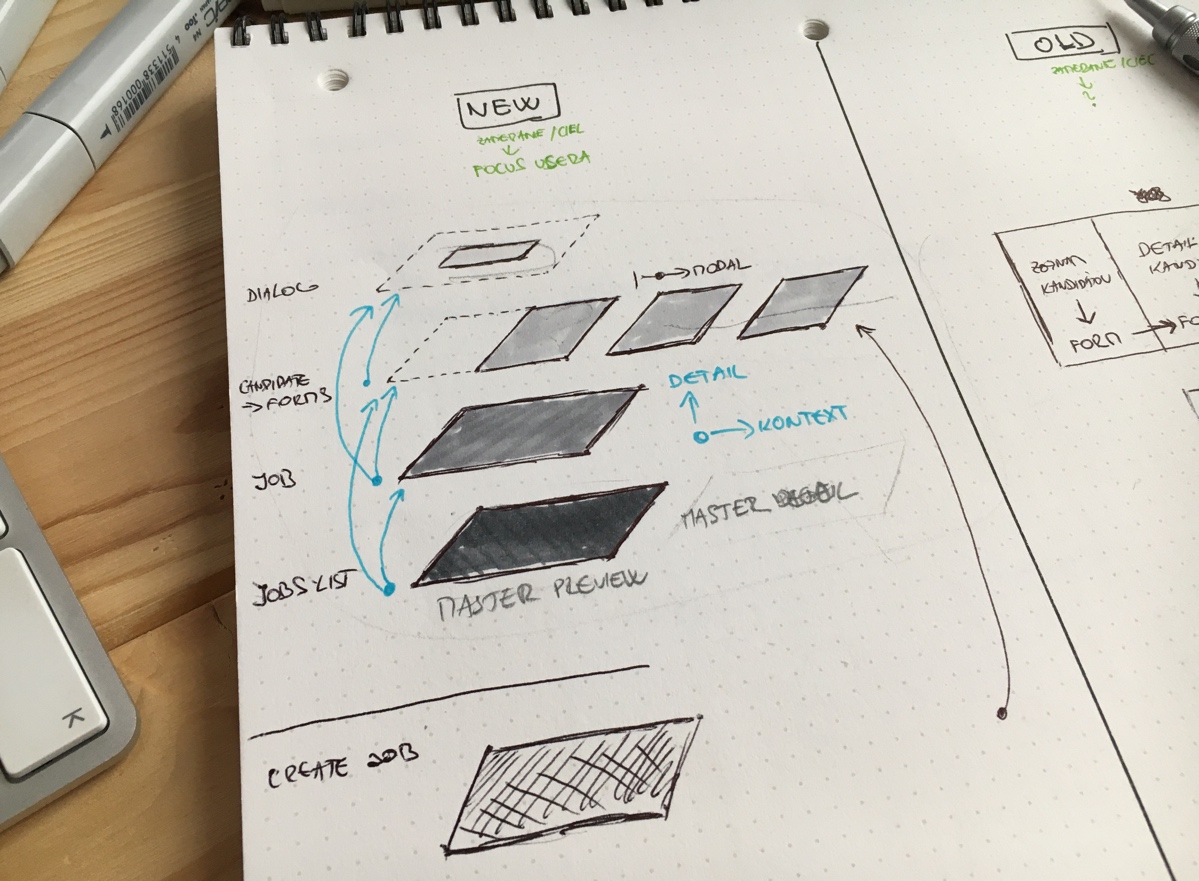 NEW
ZAMERANIE / CIEĽ
FOCUS USERA
DIALOG
MODAL
CANDIDATE
→ FORMS
DETAIL
KONTEXT
JOB
MASTER
JOBS LIST
MASTER PREVIEW
CREATE JOB
OLD
ZAMERANIE / CIEL
?
ZOZNAM
KANDIDÁTOV
FORM
DETAIL
KAND
FO
4 511338 000168